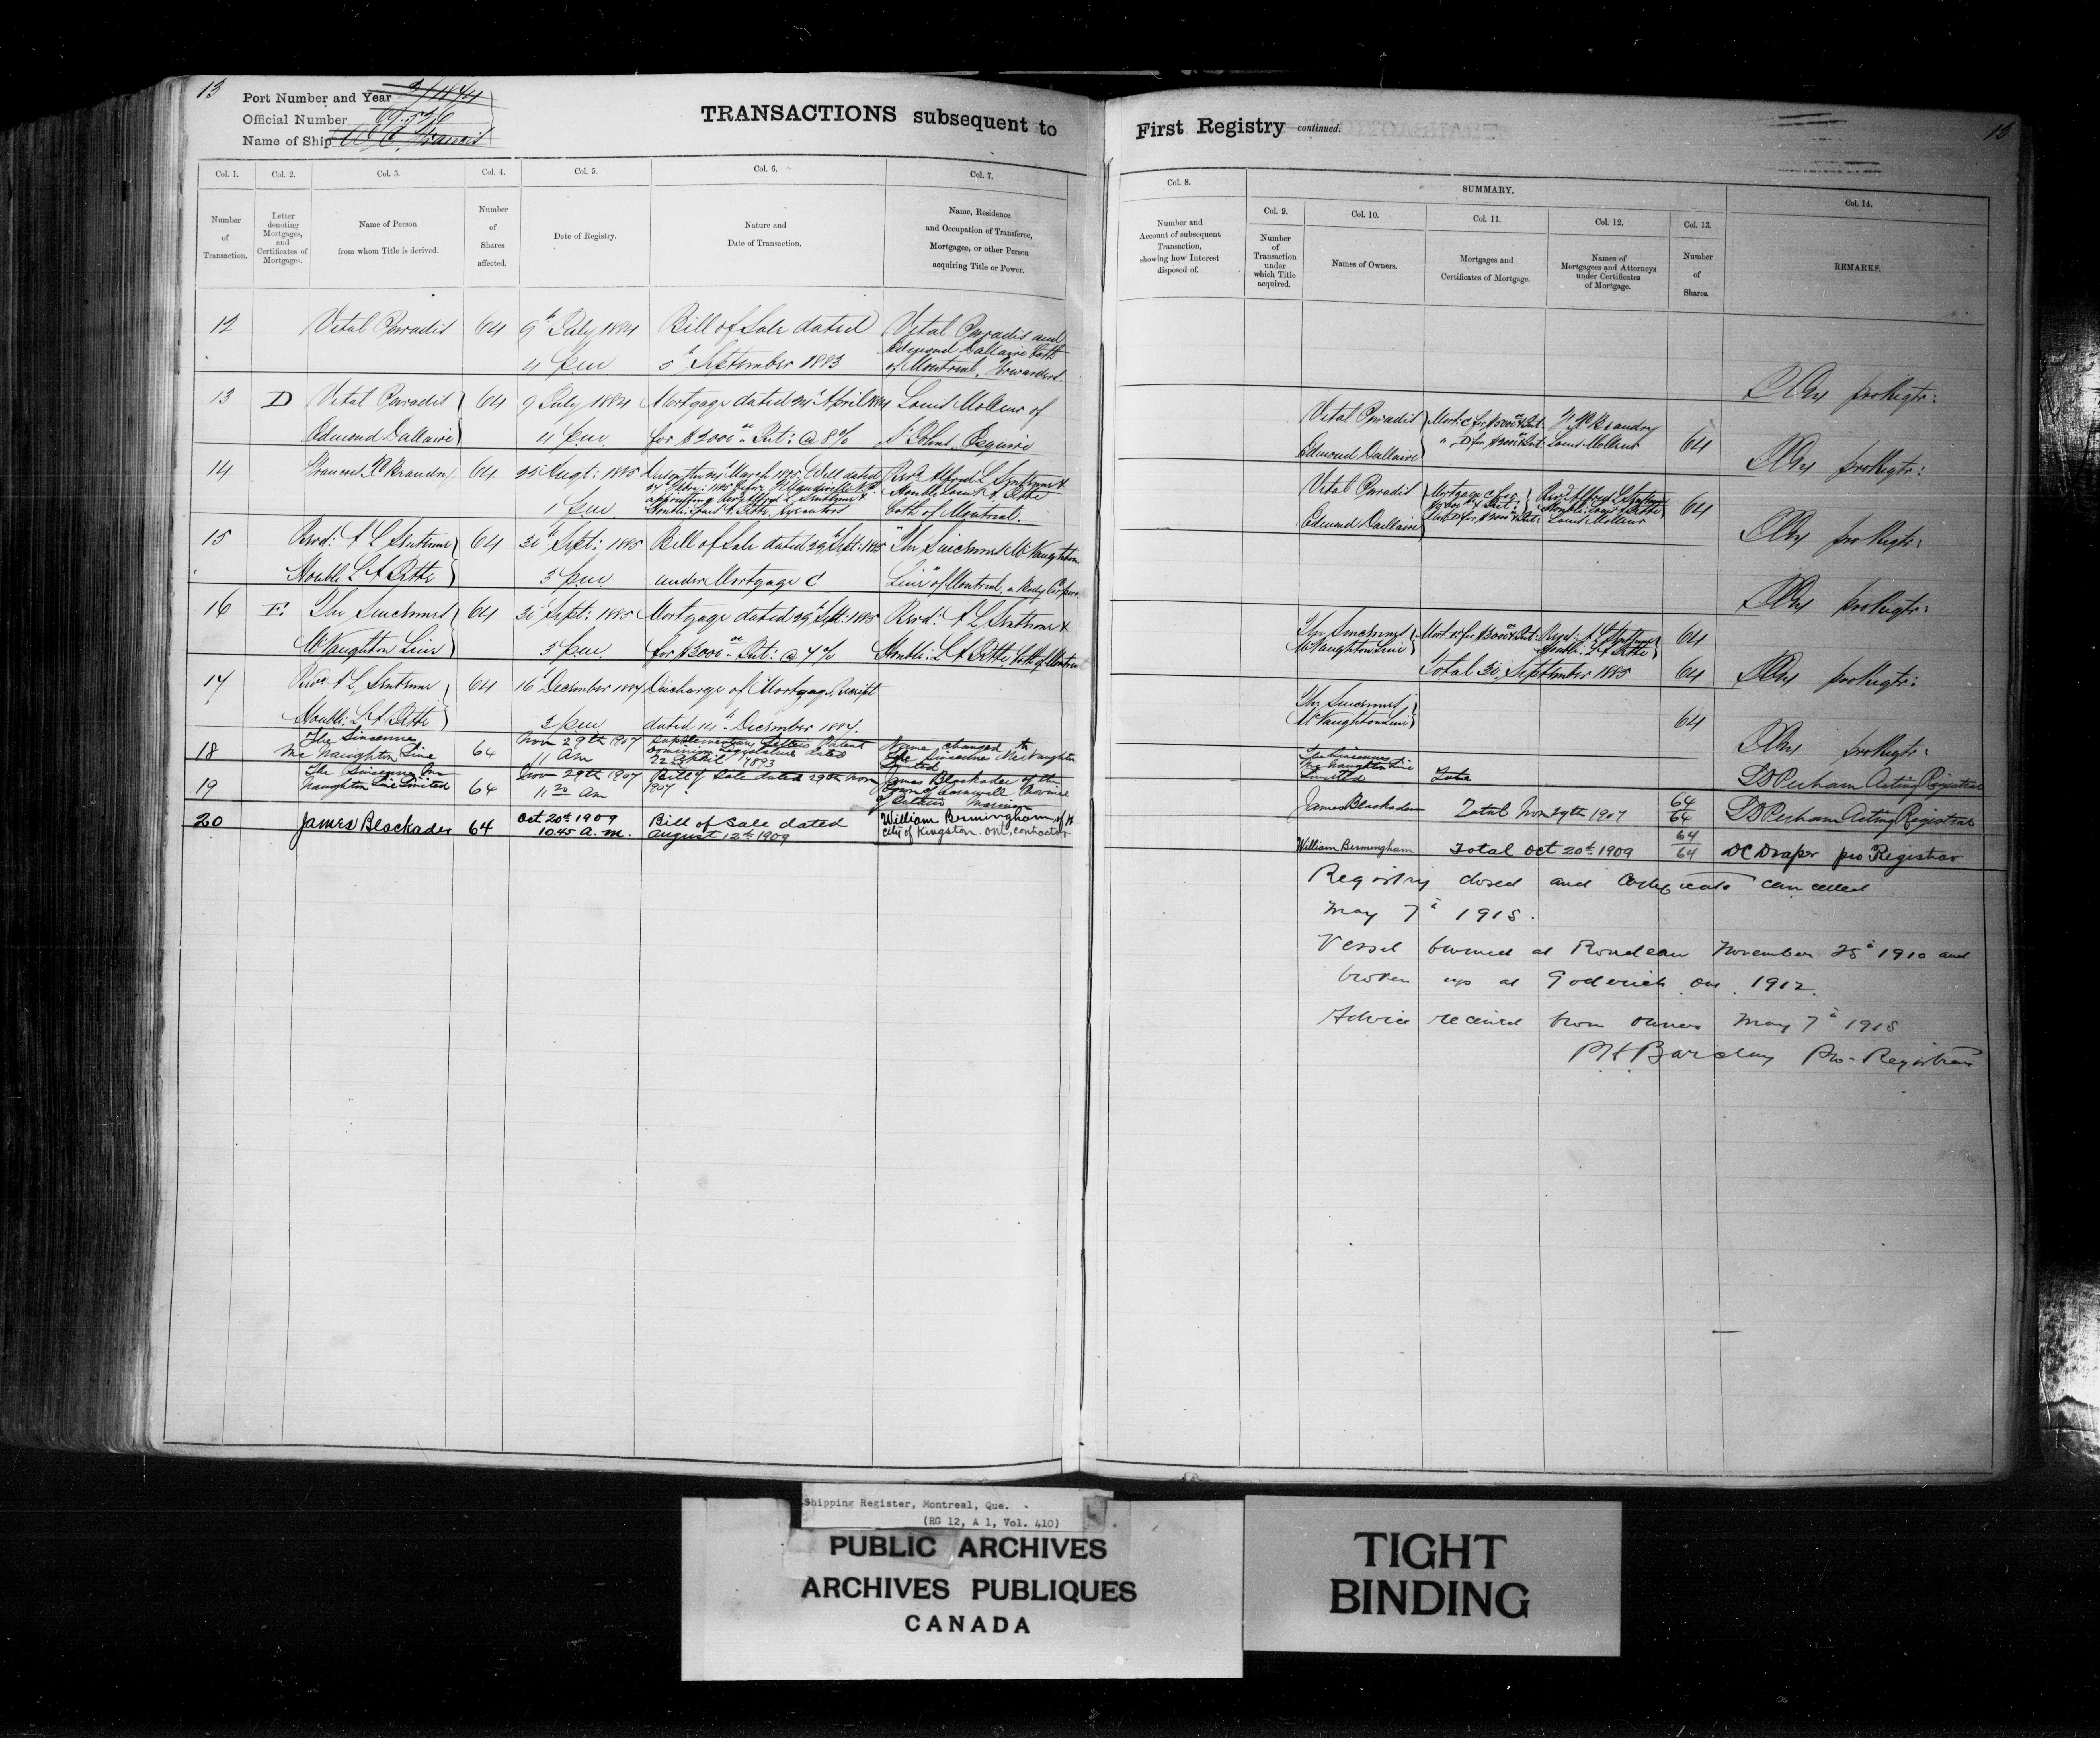 13
Port Number and Year
Official Number
Name of Ship
TRANSACTIONS subsequent to
Col. 1. Col. 2. Col. 3. Col. 4. Col. 5. Col. 6. Col. 7.
Number of Transaction.
Letter denoting Mortgages, and Certificates of Mortgages.
Name of Person from whom Title is derived.
Number of Shares affected.
Date of Registry.
Nature and Date of Transaction.
Name, Residence and Occupation of Transferee, Mortgagee, or other Person acquiring Title or Power.
12 Vital Paradis 64 9th July 1884 Bill of Sale dated Vital Paradis and
Edmond Dallaire both
4 p.m. 5th September 1883 of Montreal, Forwarders.
13 D Vital Paradis 64 9 July 1884 Mortgage dated April 1884 Louis Molleur of
Edmond Dallaire 4 p.m. for $2000 Int: @ 8% St Johns, Esquire
14 64 25 Augt: 1885 March 1885, Will dated Revd Alfred L Sentenne &
appointing Revd Alfred L Sentenne & Honble Louis A Jette
1 p.m. Honble: Louis A Jette, Executors both of Montreal.
15 Revd: A L Sentenne 64 30 Sept: 1885 Bill of Sale dated 29th Sept: 1885 "The Sincennes McNaughton
Honble L A Jette 3 p.m. under Mortgage C Line" of Montreal, a Body Corporate
16 E The Sincennes 64 30 Sept: 1885 Mortgage dated 29th Sept: 1885 Revd: A L Sentenne &
McNaughton Line 3 p.m. for $3000 Int: @ 7% Honble: L A Jette both of Montreal
17 Revd A L Sentenne 64 16 December 1887 Discharge of Mortgage, Receipt
Honble: L A Jette 3 p.m. dated 14th December 1887.
18 The Sincennes McNaughton Line 64 Nov 29th 1907 11 Am Supplementary Letters Patent Dominion Legislature dated 22nd April 1893 Name changed to The Sincennes McNaughton Line Limited
19 The Sincennes McNaughton Line Limited 64 Nov 29th 1907 11 20 Am Bill of Sale dated 29th Nov 1907. James Blackader of the Town of Cornwall Province of Ontario Mariner
20 James Blackader 64 Oct 20th 1909 Bill of Sale dated William Bermingham of
10.45 a.m. August 12th 1909 City of Kingston. Ont, contractor
First Registry—continued.
13
Col. 8.
Number and Account of subsequent Transaction, showing how Interest disposed of.
SUMMARY.
Col. 9. Col. 10. Col. 11. Col. 12. Col. 13. Col. 14.
Number of Transaction under which Title acquired.
Names of Owners.
Mortgages and Certificates of Mortgage.
Names of Mortgagees and Attorneys under Certificates of Mortgage.
Number of Shares.
REMARKS.
pro Regtr:
Vital Paradis
Edmond Dallaire Louis Molleur 64 pro Regtr:
Vital Paradis Mortgage C for Revd Alfred L Sentenne
Edmond Dallaire Louis Molleur 64 pro Regtr:
pro Regtr:
The Sincennes Revd: A L Sentenne 64
McNaughton Line Honble: L A Jette
Total 30 September 1885 64 pro Regtr:
The Sincennes
McNaughton Line 64 pro Regtr:
The Sincennes McNaughton Line Limited Total 64 Perham Acting Registrar
James Blackader Total Nov 29th 1907 64 Perham Acting Registrar
William Bermingham Total Oct 20th 1909 64 DC Draper pro Registrar
Registry closed and Certificate cancelled
May 7th 1915.
Vessel burned at Rondeau November 25th 1910 and
broken up at Goderich Ont. 1912.
Advice received from owner May 7th 1915
Barclay Pro-Registrar
Shipping Register, Montreal, Que.
(RG 12, A 1, Vol. 410)
PUBLIC ARCHIVES
ARCHIVES PUBLIQUES
CANADA
TIGHT
BINDING